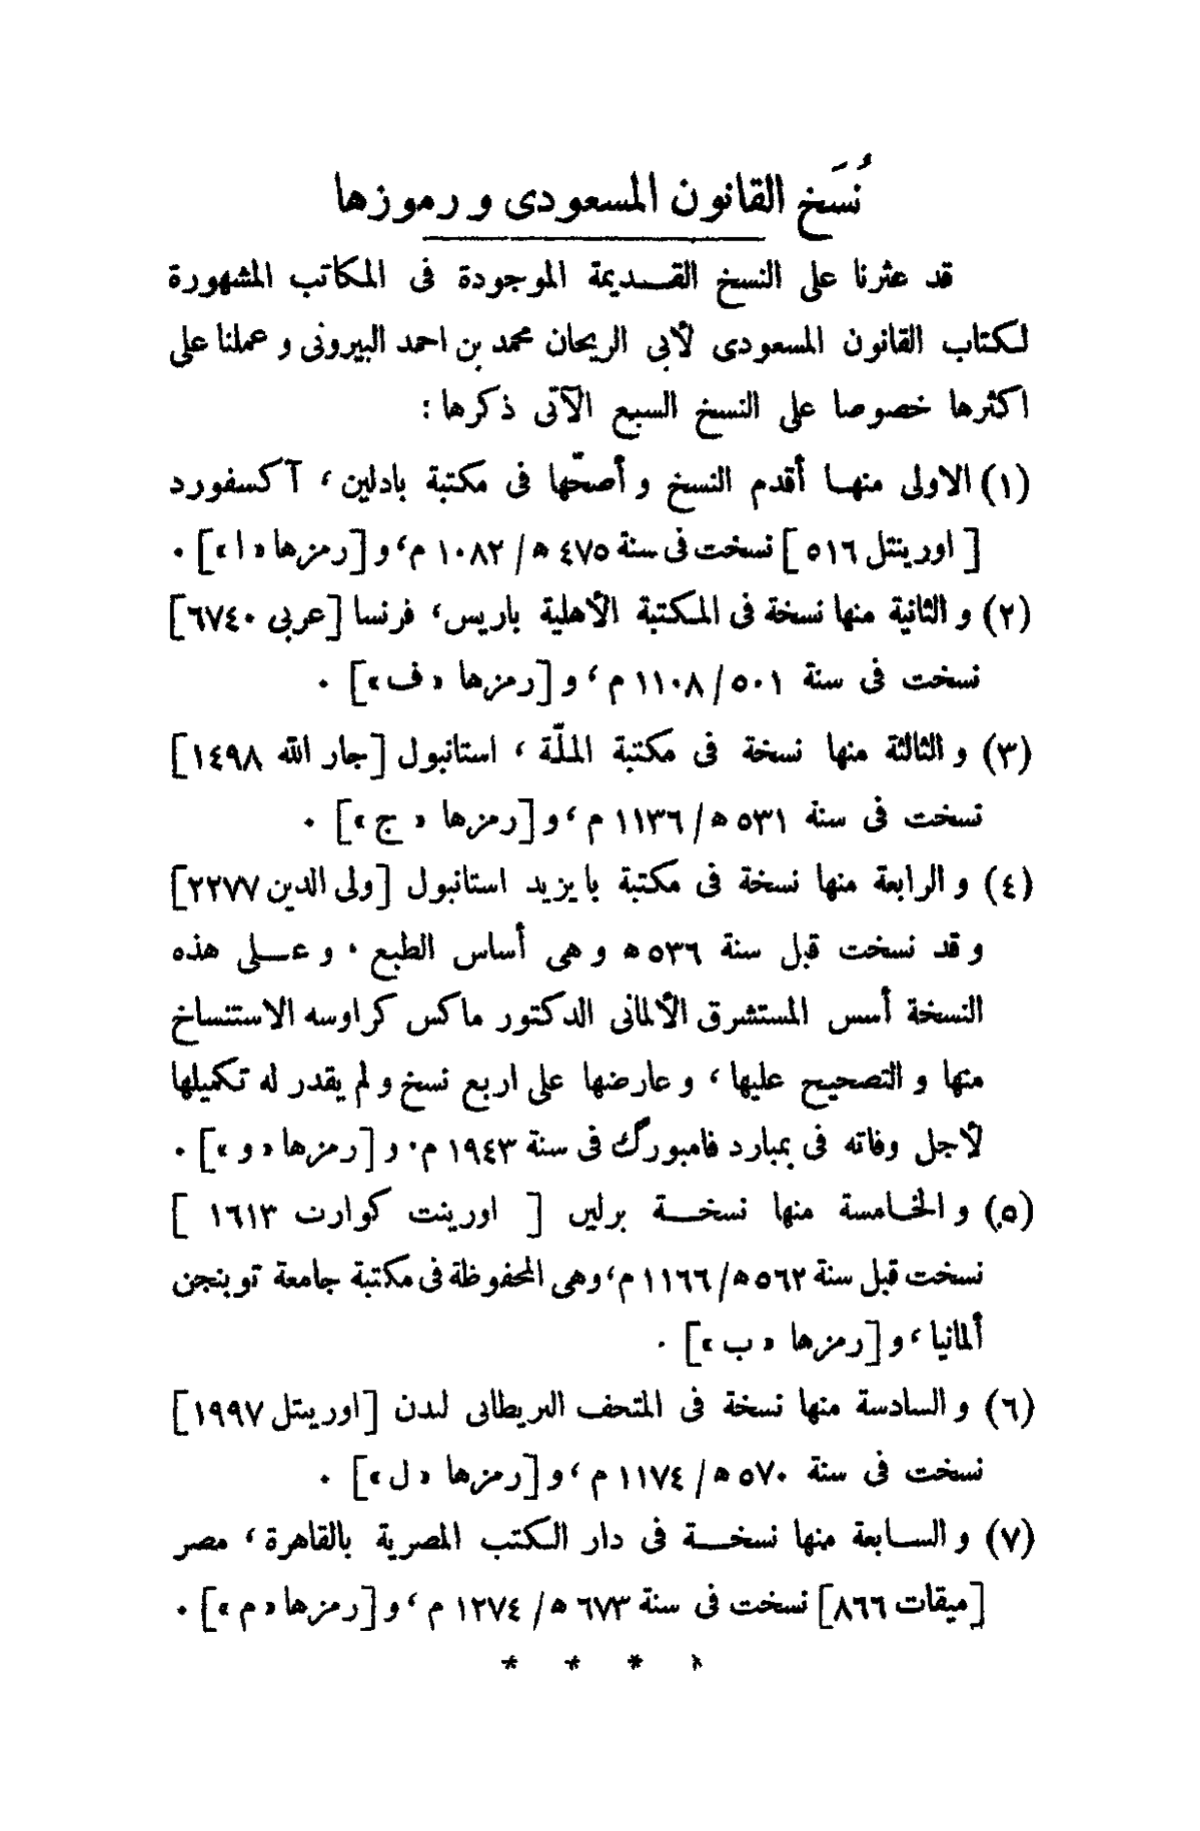 نُسَخ القانون المسعودى و رموزها
قد عثرنا على النسخ القديمة الموجودة فى المكاتب المشهورة
لكتاب القانون المسعودى لأبى الريحان محمد بن احمد البيرونى و عملنا على
اكثرها خصوصا على النسخ السبع الآتى ذكرها :
(١) الاولى منها أقدم النسخ و أصحّها فى مكتبة بادلين ، آكسفورد
[ اورينتل ٥١٦ ] نسخت فى سنة ٤٧٥ ه / ١٠٨٢ م ، و [ رمزها « ا » ] .
(٢) و الثانية منها نسخة فى المكتبة الأهلية باريس ، فرنسا [عربى ٦٧٤٠]
نسخت فى سنة ٥٠١ / ١١٠٨ م ، و [رمزها « ف »] .
(٣) و الثالثة منها نسخة فى مكتبة الملّة ، استانبول [جار الله ١٤٩٨]
نسخت فى سنة ٥٣١ ه / ١١٣٦ م ، و [رمزها « ج »] .
(٤) و الرابعة منها نسخة فى مكتبة بايزيد استانبول [ولى الدين ٢٢٧٧]
و قد نسخت قبل سنة ٥٣٦ ه و هى أساس الطبع . و على هذه
النسخة أسس المستشرق الألمانى الدكتور ماكس كراوسه الاستنساخ
منها و التصحيح عليها ، و عارضها على اربع نسخ و لم يقدر له تكميلها
لأجل وفاته فى بمبارد فامبورگ فى سنة ١٩٤٣ م . و [رمزها « و »] .
(٥) و الخامسة منها نسخة برلين [ اورينت كوارت ١٦١٣ ]
نسخت قبل سنة ٥٦٢ ه / ١١٦٦ م ، وهى المحفوظة فى مكتبة جامعة توبنجن
ألمانيا ، و [رمزها « ب »] .
(٦) و السادسة منها نسخة فى المتحف البريطانى لندن [اورينتل ١٩٩٧]
نسخت فى سنة ٥٧٠ ه / ١١٧٤ م ، و [رمزها « ل »] .
(٧) و السابعة منها نسخة فى دار الكتب المصرية بالقاهرة ، مصر
[ميقات ٨٦٦] نسخت فى سنة ٦٧٣ ه / ١٢٧٤ م ، و [رمزها « م »] .
* * * *